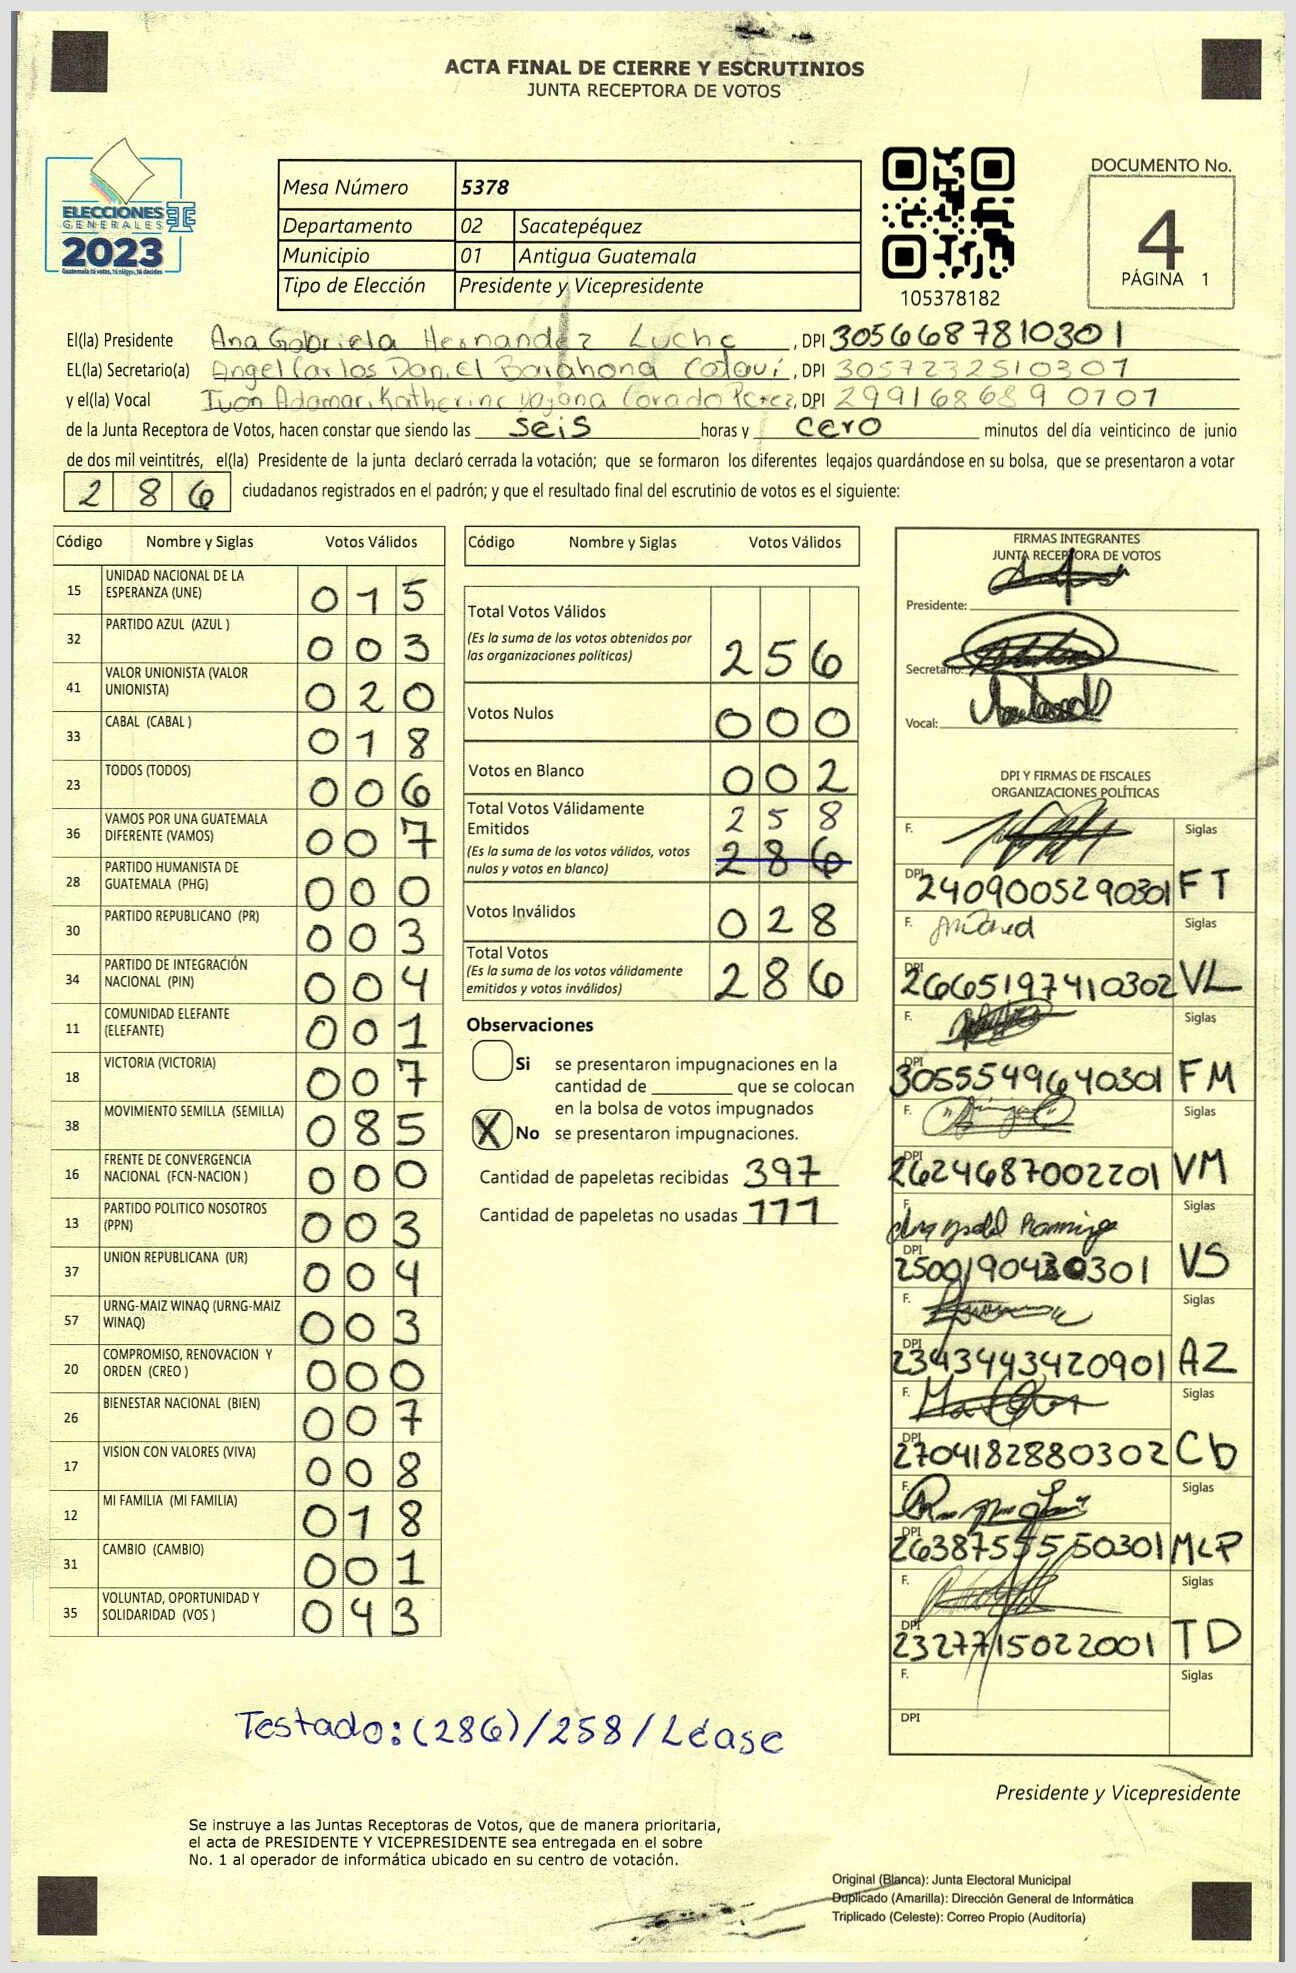 ACTA FINAL DE CIERRE Y ESCRUTINIOS
JUNTA RECEPTORA DE VOTOS
ELECCIONES
GENERALES
2023
Guatemala tú votas, tú eliges, tú decides
Mesa Número 5378
Departamento 02 Sacatepéquez
Municipio 01 Antigua Guatemala
Tipo de Elección Presidente y Vicepresidente
105378182
DOCUMENTO No.
4
PÁGINA 1
El(la) Presidente Ana Gabriela Hernandez Luche, DPI 3056687810301
EL(la) Secretario(a) Angel Carlos Daniel Barahona Cotouí, DPI 3057232510301
y el(la) Vocal Ivon Adamari Katherine Dayana Corado Perez, DPI 2991686890101
de la Junta Receptora de Votos, hacen constar que siendo las seis horas y cero minutos del día veinticinco de junio
de dos mil veintitrés, el(la) Presidente de la junta declaró cerrada la votación; que se formaron los diferentes legajos quardándose en su bolsa, que se presentaron a votar
286 ciudadanos registrados en el padrón; y que el resultado final del escrutinio de votos es el siguiente:
Código Nombre y Siglas Votos Válidos
15 UNIDAD NACIONAL DE LA ESPERANZA (UNE) 015
32 PARTIDO AZUL (AZUL ) 003
41 VALOR UNIONISTA (VALOR UNIONISTA) 020
33 CABAL (CABAL ) 018
23 TODOS (TODOS) 006
36 VAMOS POR UNA GUATEMALA DIFERENTE (VAMOS) 007
28 PARTIDO HUMANISTA DE GUATEMALA (PHG) 000
30 PARTIDO REPUBLICANO (PR) 003
34 PARTIDO DE INTEGRACIÓN NACIONAL (PIN) 004
11 COMUNIDAD ELEFANTE (ELEFANTE) 001
18 VICTORIA (VICTORIA) 007
38 MOVIMIENTO SEMILLA (SEMILLA) 085
16 FRENTE DE CONVERGENCIA NACIONAL (FCN-NACION ) 000
13 PARTIDO POLITICO NOSOTROS (PPN) 003
37 UNION REPUBLICANA (UR) 004
57 URNG-MAIZ WINAQ (URNG-MAIZ WINAQ) 003
20 COMPROMISO, RENOVACION Y ORDEN (CREO ) 000
26 BIENESTAR NACIONAL (BIEN) 007
17 VISION CON VALORES (VIVA) 008
12 MI FAMILIA (MI FAMILIA) 018
31 CAMBIO (CAMBIO) 001
35 VOLUNTAD, OPORTUNIDAD Y SOLIDARIDAD (VOS ) 043
Código Nombre y Siglas Votos Válidos
Total Votos Válidos
(Es la suma de los votos obtenidos por
las organizaciones políticas) 256
Votos Nulos 000
Votos en Blanco 002
Total Votos Válidamente 258
Emitidos
(Es la suma de los votos válidos, votos
nulos y votos en blanco) 286
Votos Inválidos 028
Total Votos
(Es la suma de los votos válidamente
emitidos y votos inválidos) 286
Observaciones
Si se presentaron impugnaciones en la
cantidad de ________ que se colocan
en la bolsa de votos impugnados
X No se presentaron impugnaciones.
Cantidad de papeletas recibidas 397
Cantidad de papeletas no usadas 111
FIRMAS INTEGRANTES
JUNTA RECEPTORA DE VOTOS
Presidente:
Secretario:
Vocal:
DPI Y FIRMAS DE FISCALES
ORGANIZACIONES POLÍTICAS
F. Siglas
DPI 2409005290301 FT
F. Siglas
DPI 2665197410302 VL
F. Siglas
DPI 3055549640301 FM
F. Siglas
DPI 2624687002201 VM
F. Siglas
DPI VS
F. Siglas
DPI 2343443420901 AZ
F. Siglas
DPI 2704182880302 Cb
F. Siglas
DPI 2638755550301 MLP
F. Siglas
DPI 2327715022001 TD
F. Siglas
DPI
Testado: (286) / 258 / Léase
Presidente y Vicepresidente
Se instruye a las Juntas Receptoras de Votos, que de manera prioritaria,
el acta de PRESIDENTE Y VICEPRESIDENTE sea entregada en el sobre
No. 1 al operador de informática ubicado en su centro de votación.
Original (Blanca): Junta Electoral Municipal
Duplicado (Amarilla): Dirección General de Informática
Triplicado (Celeste): Correo Propio (Auditoría)